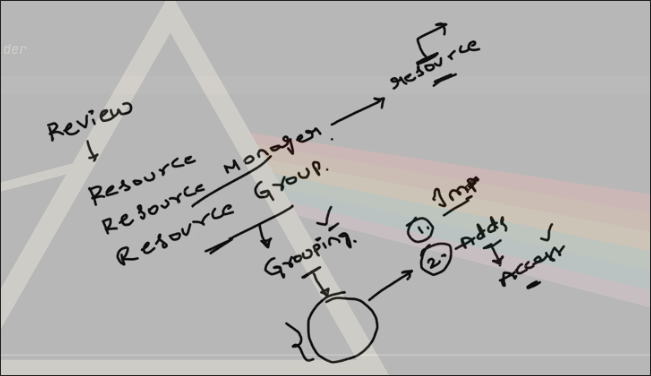 der
Review
Resource
Resource Manager.
Resource Group.
resource
Grouping.
1. Imp
2. Adds
Accest